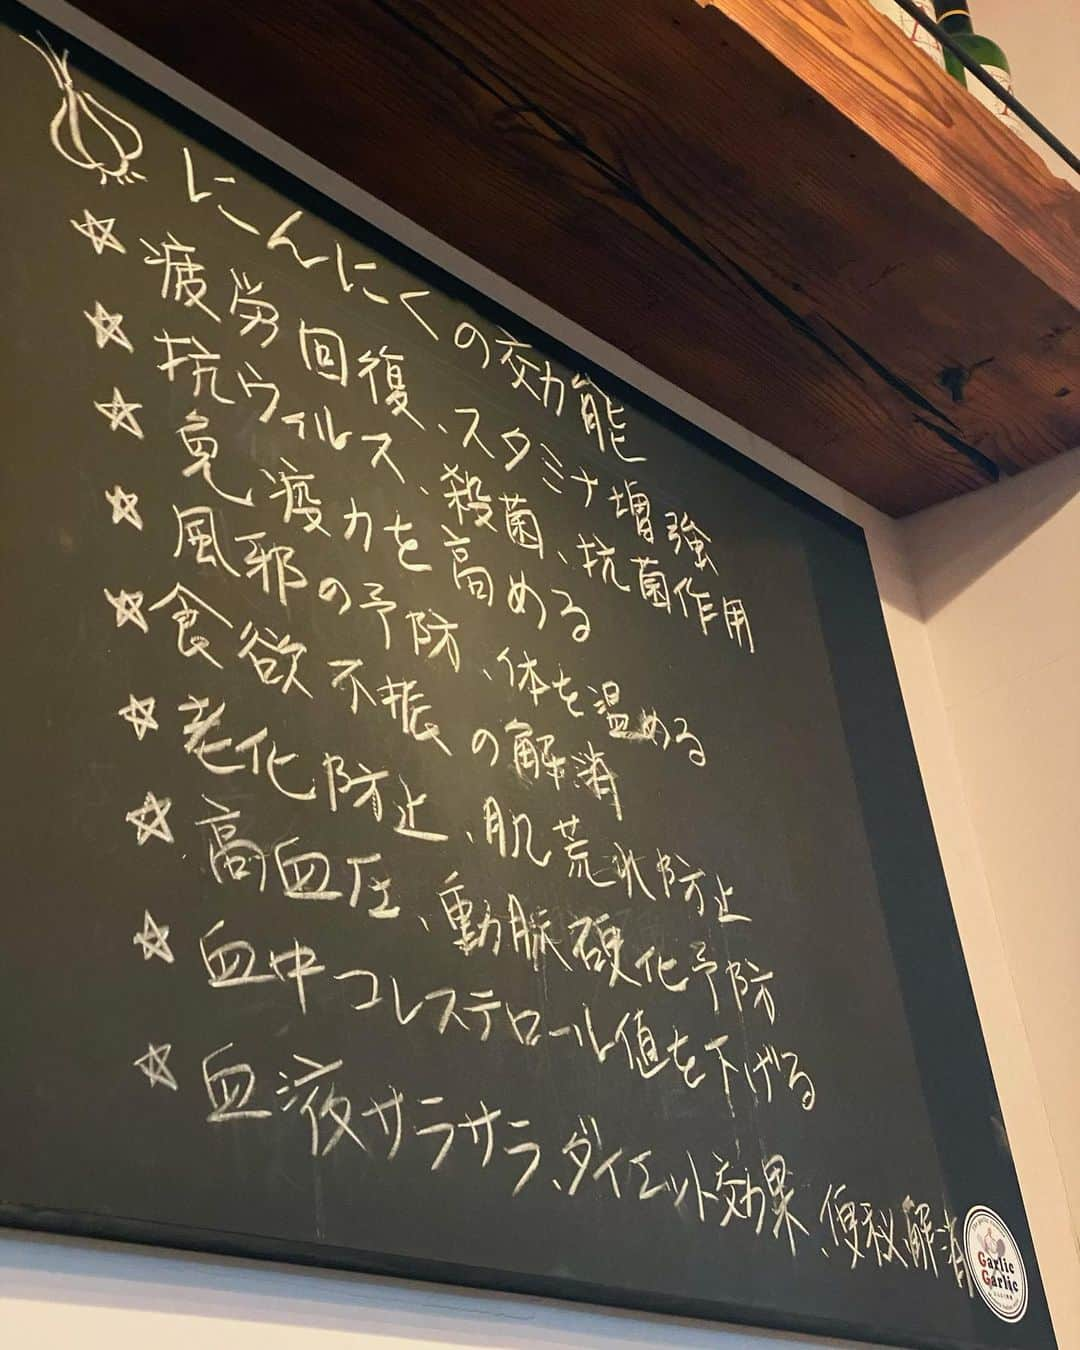 にんにくの効能
☆ 疲労回復、スタミナ増強
☆ 抗ウィルス、殺菌、抗菌作用
☆ 免疫力を高める
☆ 風邪の予防、体を温める
☆ 食欲不振の解消
☆ 老化防止、肌荒れ防止
☆ 高血圧、動脈硬化予防
☆ 血中コレステロール値を下げる
☆ 血液サラサラ、ダイエット効果、便秘解消
Garlic
Garlic